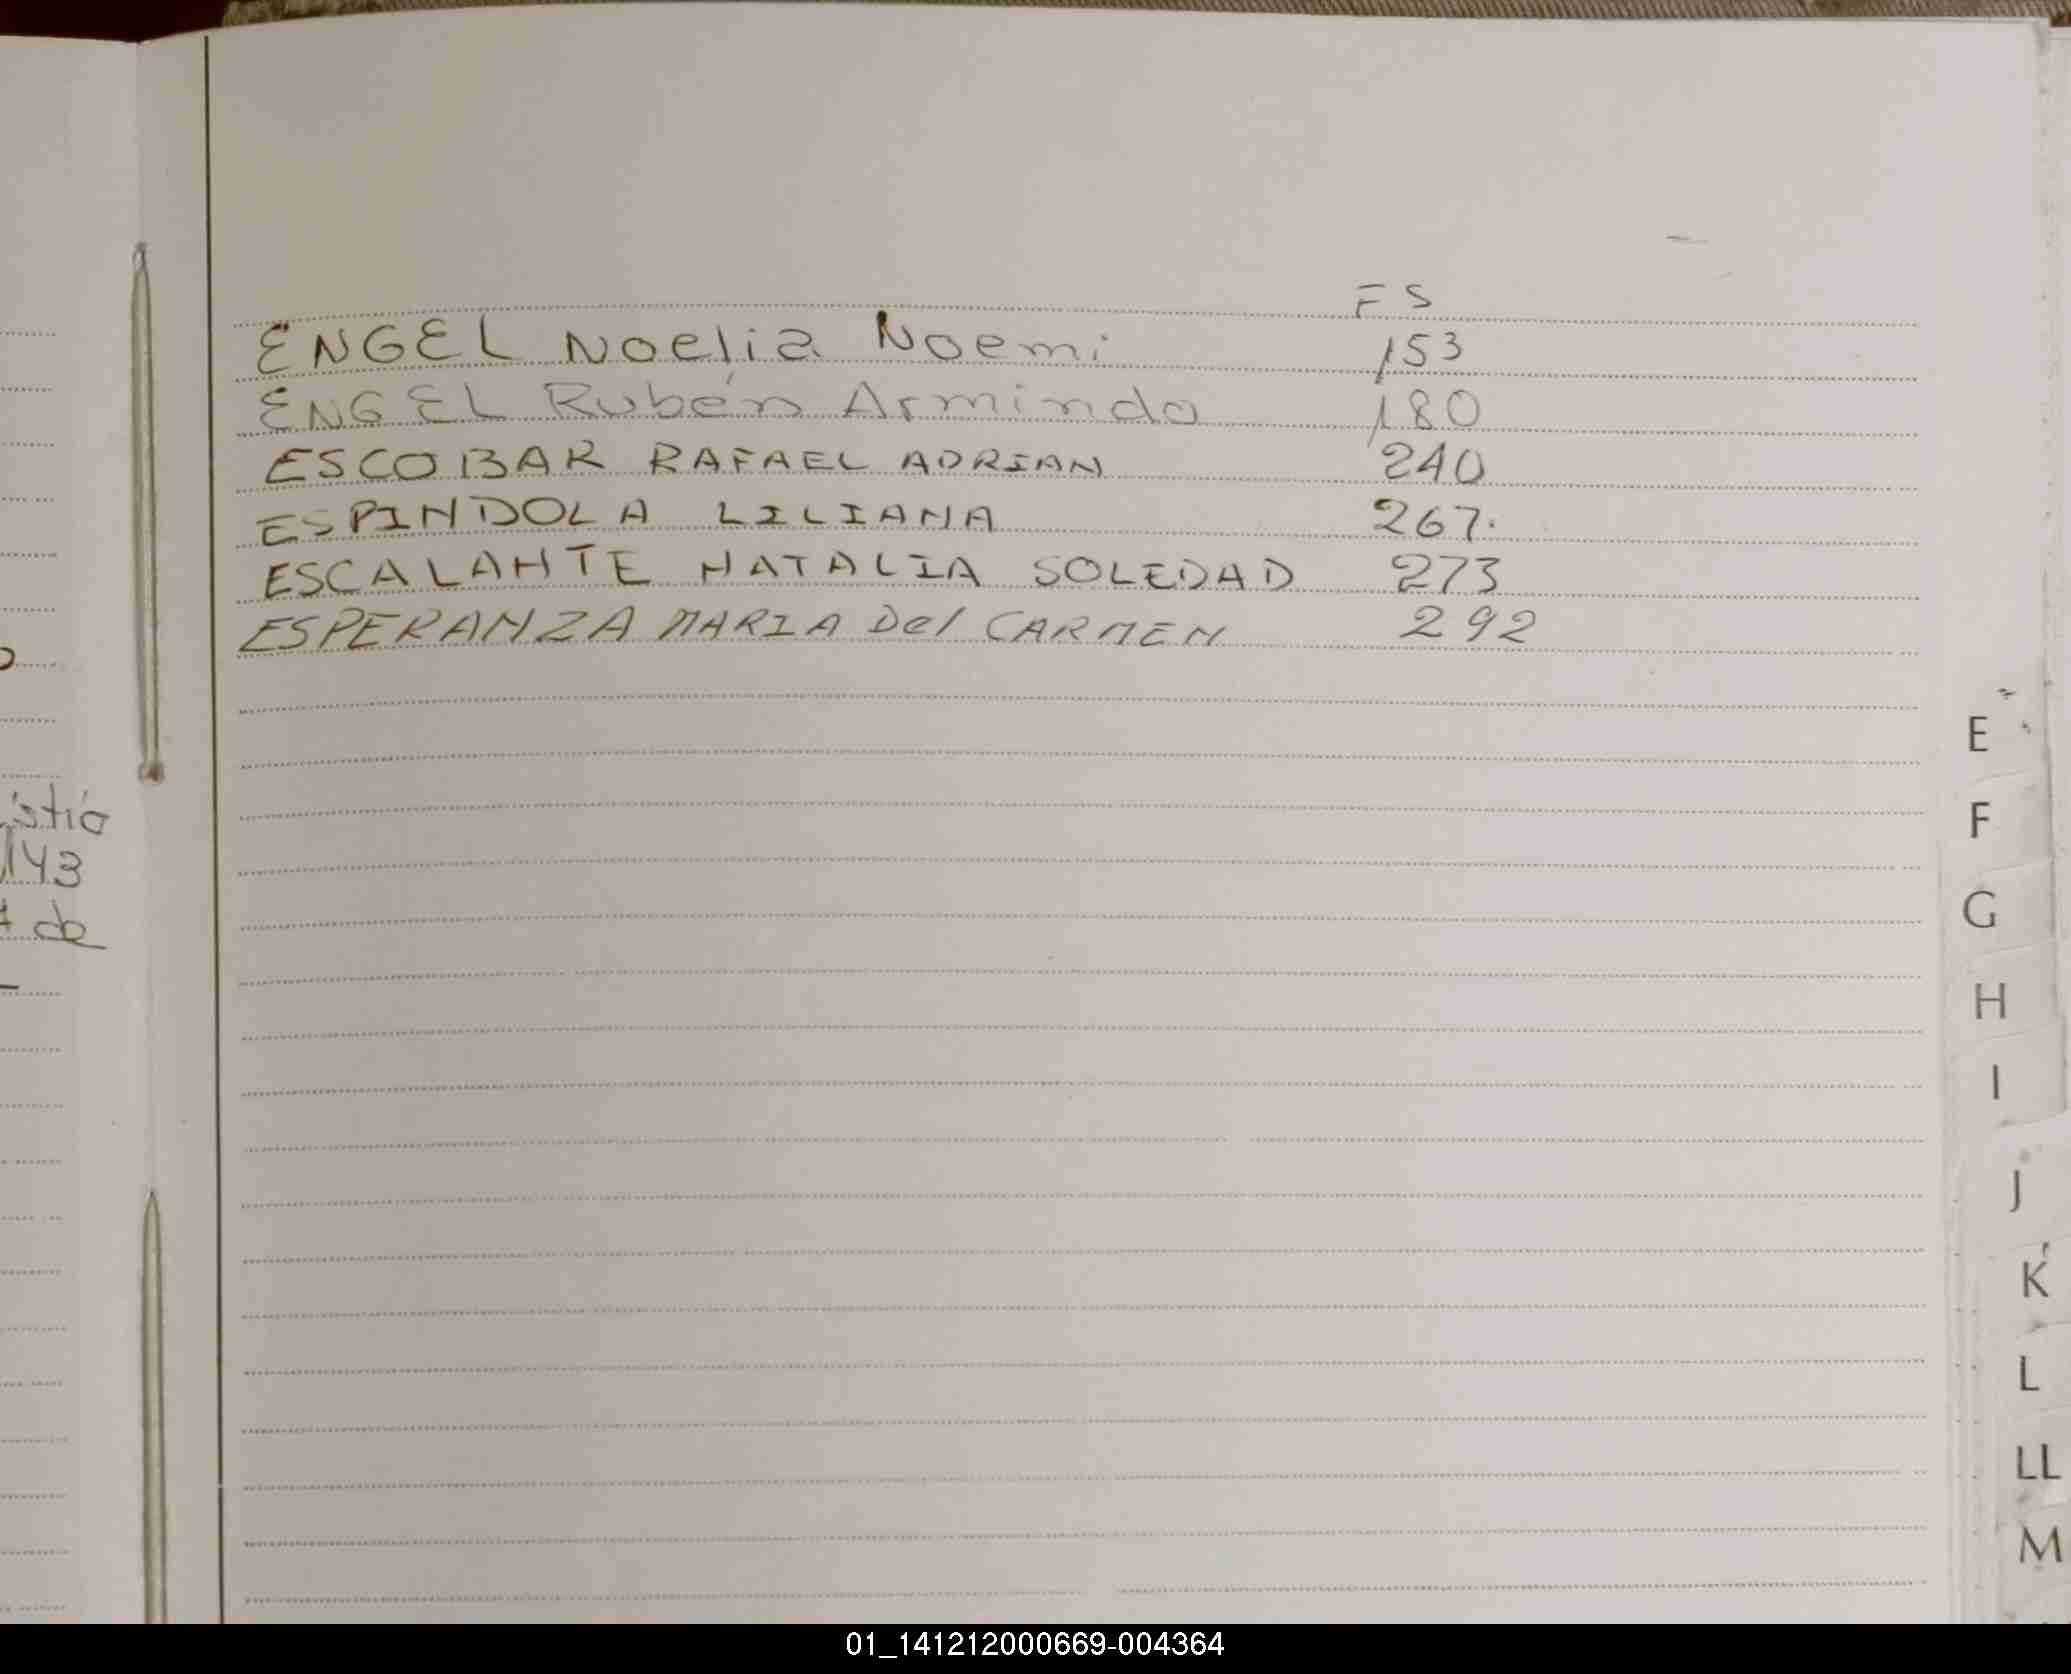 FS
ENGEL Noelia Noemi 153
ENGEL Rubén Armindo 180
ESCOBAR RAFAEL ADRIAN 240
ESPINDOLA LILIANA 267.
ESCALANTE NATALIA SOLEDAD 273
ESPERANZA MARIA Del CARMEN 292
143
de
E
F
G
H
I
J
K
L
LL
M
01_141212000669-004364